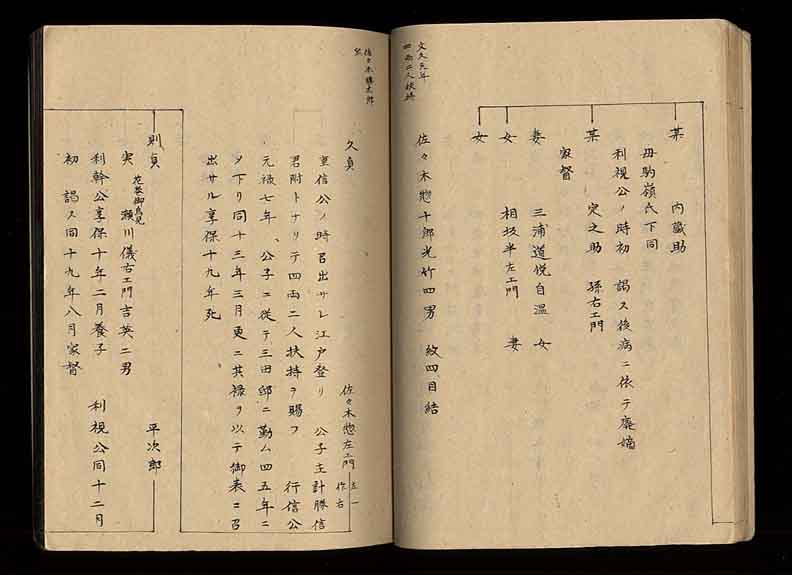 某　内蔵助
母駒嶺氏下同
利視公ノ時初　謁ス後病ニ依テ廃嫡
某　定之助　孫右エ門
家督
妻　三浦道悦自温　女
女　相坂半左エ門　妻
女
文久元年
四両二人扶持
佐々木惣十郎光竹四男　紋四目結
佐々木勝太郎
久貞　佐々木惣左エ門
重信公ノ時召出サレ江戸登リ　公子主計勝信
君附トナリテ四両二人扶持ヲ賜フ　行信公
元禄七年、公子ニ従テ三田邸ニ勤ム四五年ニ
ヲ下リ同十三年三月更ニ其禄ヲ以テ御表ニ召
出サル享保十九年死
則貞　平次郎
実　瀬川儀右エ門吉英二男
利幹公享保十年二月養子　利視公同十二月
初　謁ス同十九年八月家督